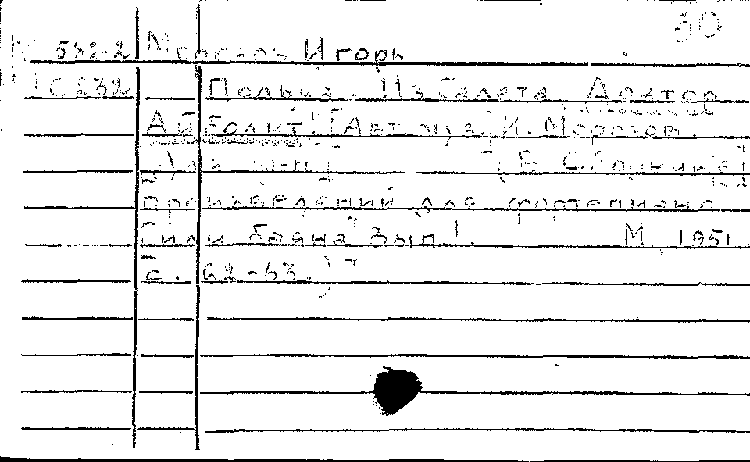 30
М 532-2 Морозов Игорь
1С232 Полька. Из балета Доктор
Айболит. [Авт муз.] И. Морозов.
[В сборнике]
произведений для фортепиано
[или баяна] Вып 1. М. 1951
с. 62-63.